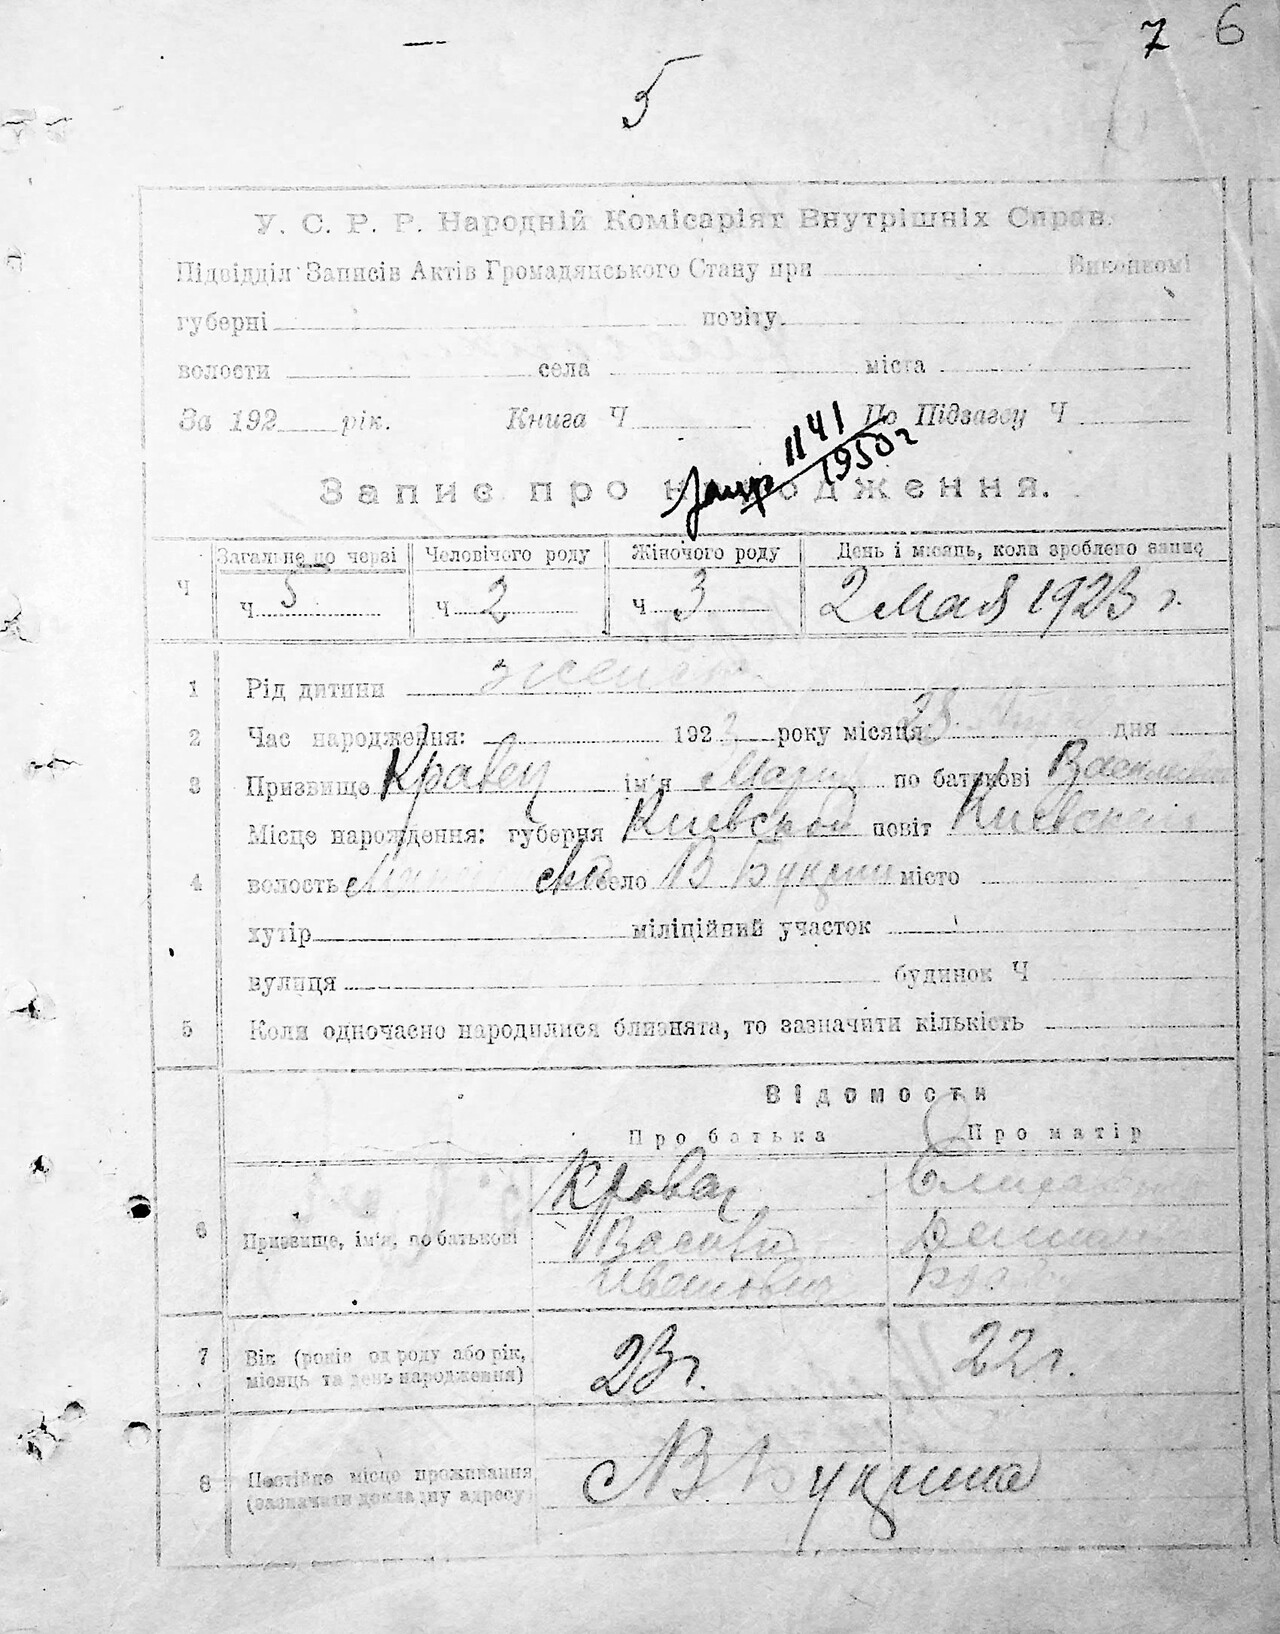 7 6
5
У. С. Р. Р. Народній Комісаріят Внутрішніх Справ.
Підвідділ Записів Актів Громадянського Стану при Виконкомі
губерні повіту
волости села міста
За 192 рік. Книга Ч По Підзагсу Ч
1141
1950 г
Запис про народження.
Ч Загальне по черзі Человічого роду Жіночого роду День і місяць, коли зроблено запис
Ч 5 Ч 2 Ч 3 2 мая 1923 г.
1 Рід дитини женск
2 Час народження: 1923 року місяця дня
3 Призвище Кравец ім'я Мария по батькові
Місце нарождення: губерня Киевской повіт Киевска
4 волость село В Букрин місто
хутір міліційний участок
вулиця будинок Ч
5 Коли одночасно народилися близнята, то зазначити кількість
Відомости
Про батька Про матір
6 Призвище, ім'я, по батькові Кровец
Васили
Иванович
7 Вік (років од роду або рік, місяць та день народження) 23 г. 22 г.
8 Постійне місце проживання (зазначити докладну адресу) с В. Букрина